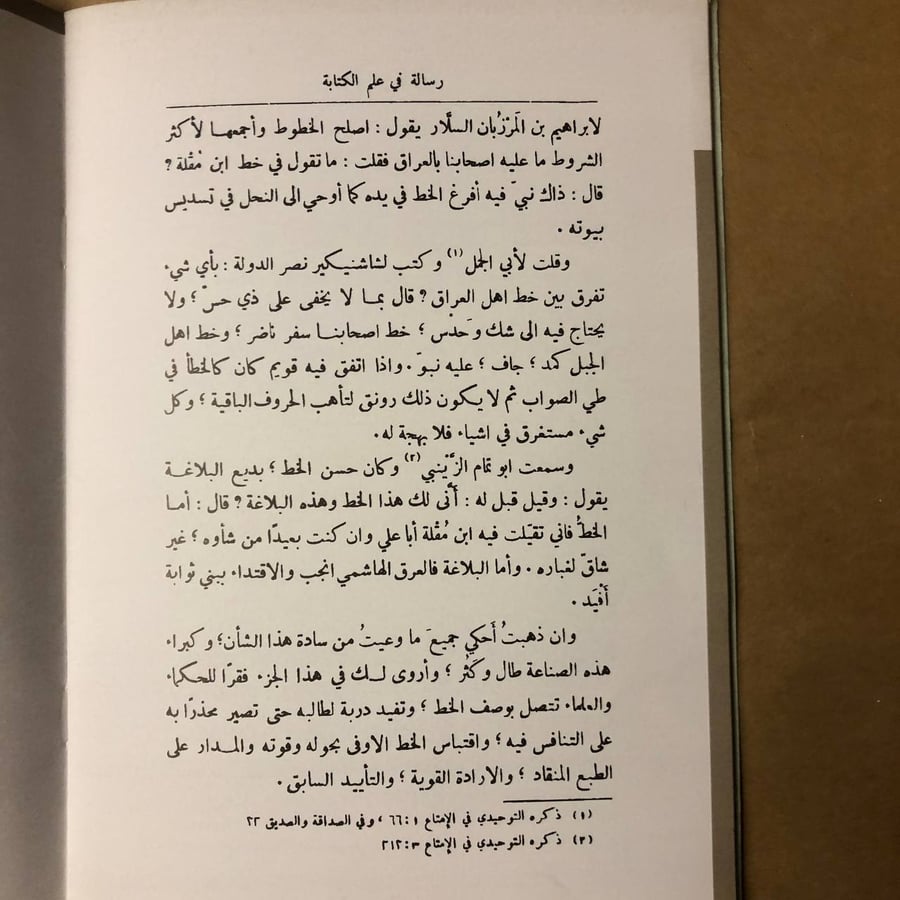 رسالة في علم الكتابة
لابراهيم بن المَرْزُبان السلَّار يقول : اصلح الخطوط وأجمعهـا لأكثر
الشروط ما عليه اصحابنا بالعراق فقلت : ما تقول في خط ابن مُقْلة ?
قال : ذاك نبيّ فيه أفرغ الخط في يده كما أوحي الى النحل في تسديس
بيوته .
وقلت لأبي الجمل (١) وكتب لشاشنيكير نصر الدولة : بأي شيء
تفرق بين خط اهل العراق ? قال بمـا لا يخفى على ذي حسّ ؛ ولا
يحتاج فيه الى شك وحَدْس ؛ خط اصحابنـا سفر ناضر ؛ وخط اهل
الجبل كمد ؛ جاف ؛ عليه نبوّ . واذا اتفق فيه قويم كان كالخطأ في
طي الصواب ثم لا يكون ذلك رونق لتأهب الحروف الباقية ؛ وكل
شيء مستغرق في اشياء فلا بهجة له .
وسمعت ابو تمام الزَّيْنبي (٢) وكان حسن الخط ؛ بديع البلاغـة
يقول : وقيل قبل له : أَنَّى لك هذا الخط وهذه البلاغة ? قال : أمـا
الخطُّ فاني تقيّلت فيه ابن مُقْلة أبا علي وان كنت بعيدًا من شأوه ؛ غير
شاقّ لغباره . وأما البلاغة فالعرق الهاشمي انجب والاقتداء ببني ثوابة
أفْيَد .
وان ذهبتُ أَحكي جميعَ ما وعيتُ من سادة هذا الشأن ؛ وكبراء
هذه الصناعة طال وكَثُر ؛ وأروى لـك في هذا الجزء فقرًا للحكماء
والعلماء تتصل بوصف الخط ؛ وتفيد دربة لطالبه حتى تصير محذرًا به
على التنافس فيه ؛ واقتباس الخط الاوفى بحوله وقوته والمـدار على
الطبع المنقاد ؛ والارادة القوية ؛ والتأييد السابق .
(١) ذكره التوحيدي في الإمتاع ١ : ٦٦ ، وفي الصداقة والصديق ٢٢
(٢) ذكره التوحيدي في الإمتاع ٣ : ٢١٢